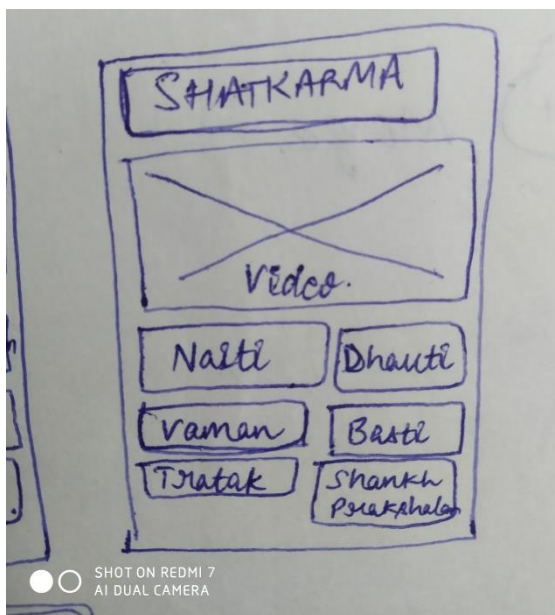 SHATKARMA
Video.
Naiti Dhauti
Vaman Basti
Tratak Shankh
Prakshalan
SHOT ON REDMI 7
AI DUAL CAMERA